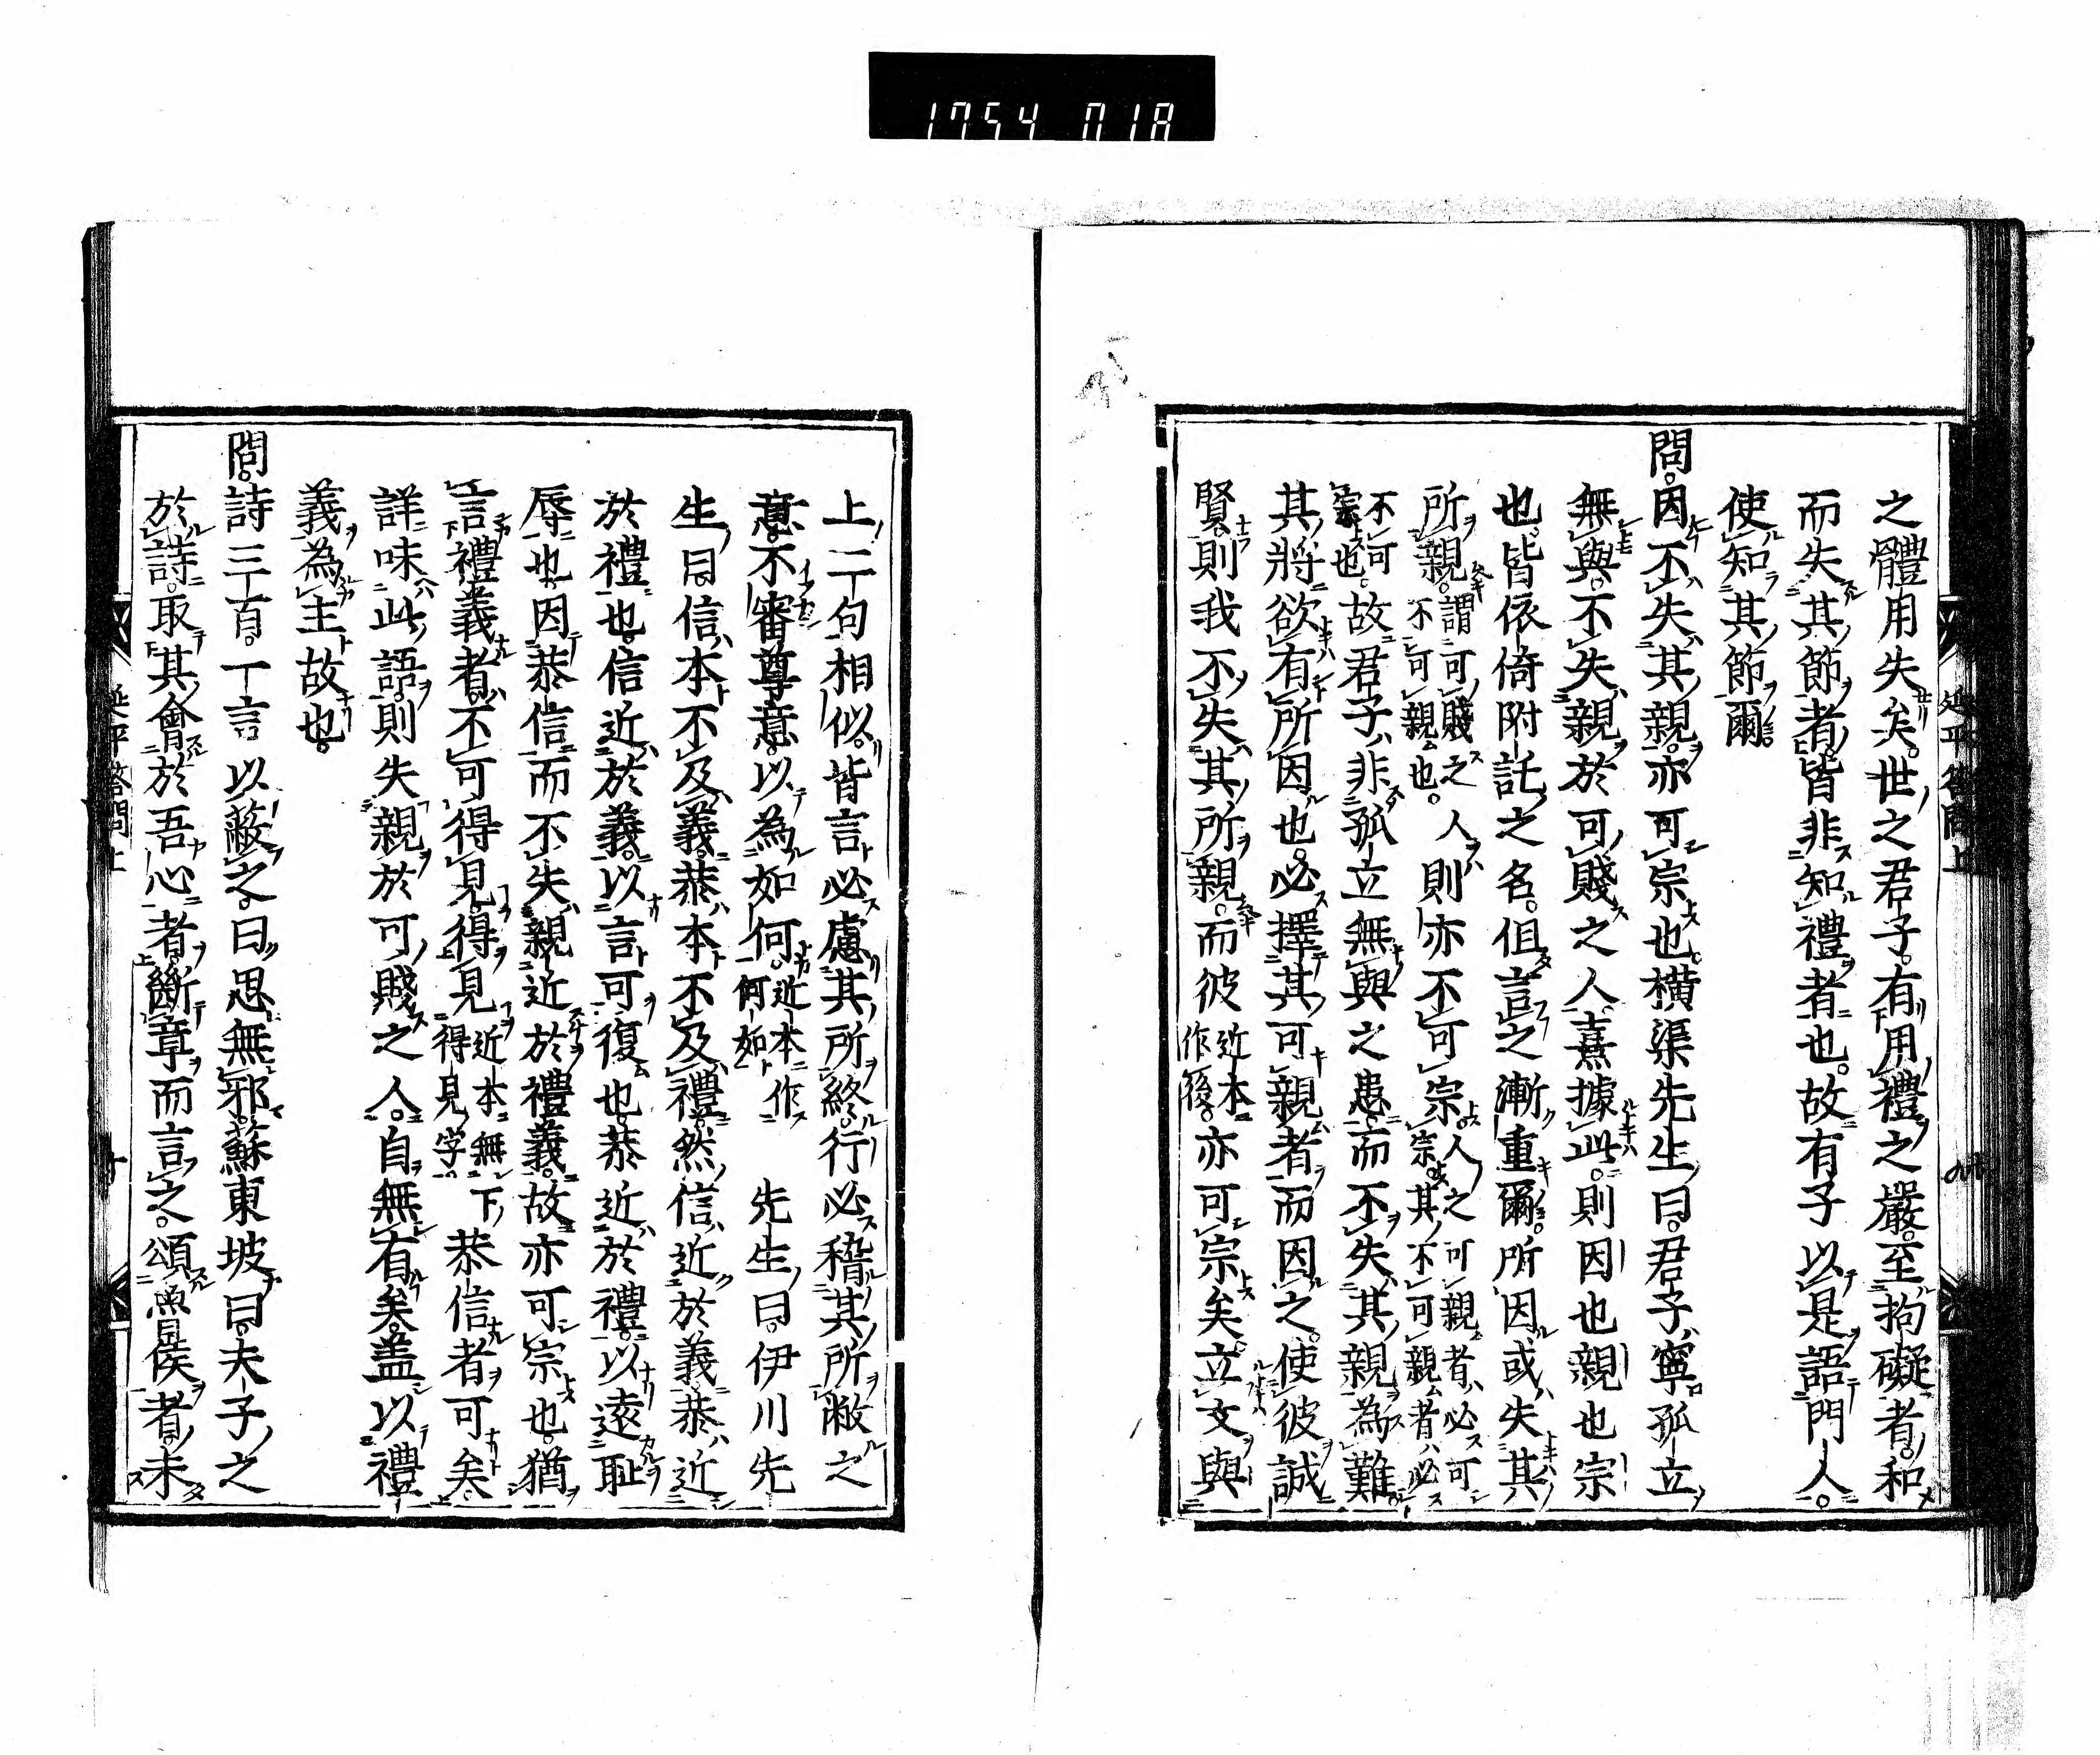 1754 018
之體用失矣。世之君子。有用禮之嚴。至拘礙者。和
而失其節者。皆非知禮者也。故有子以是語門人。
使知其節爾。
問。因不失其親。亦可宗也。橫渠先生曰。君子寧孤立
無與。不失親於可賤之人。熹據此。則因也親也宗
也。皆依倚附託之名。但言之漸重爾。所因或失其
所親。謂可賤之人不可親也。則亦不可宗。人之可親者必可宗。其不可親者必
不可宗也。故君子非孤立無與之患。而不失其親為難。
其將欲有所因也。必擇其可親者而因之。使彼誠
賢則我不失其所親。而彼近本作後。亦可宗矣。立文與
上二句相似。皆言必慮其所終。行必稽其所敝之
意。不審尊意。以為如何。近本作何如 先生曰。伊川先
生曰。信本不及義。恭本不及禮。然信近於義。恭近
於禮也。信近於義。以言可復也。恭近於禮。以遠恥
辱也。因恭信而不失親近於禮義。故亦可宗也。猶
言禮義者。不可得見。得見近本無下得見字恭信者可矣。
詳味此語。則失親於可賤之人。自無有矣。蓋以禮
義為主故也。
問。詩三百。一言以蔽之。曰思無邪。蘇東坡曰。夫子之
於詩。取其會於吾心者。斷章而言之。頌魯侯者。未
延平答問上
延平答問上